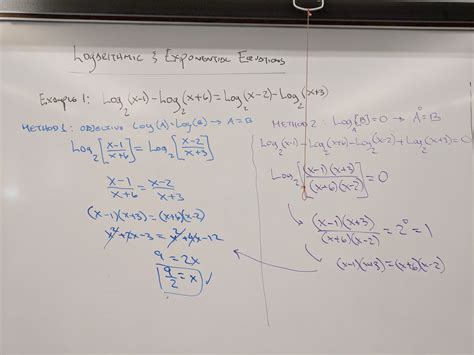 Logarithmic & Exponential Equations
Example 1: Log₂(x-1)-Log₂(x+6)=Log₂(x-2)-Log₂(x+3)
Method 1: objective Log(A)=Log(B) → A=B
Log₂[x-1/x+6]=Log₂[x-2/x+3]
x-1/x+6 = x-2/x+3
(x-1)(x+3)=(x+6)(x-2)
x²+2x-3=x²+4x-12
9=2x
9/2=x ✓
Method 2: Log[B]=0 → A⁰=B
Log₂(x-1)-Log₂(x+6)-Log₂(x-2)+Log₂(x+3)=0
Log₂[(x-1)(x+3)/(x+6)(x-2)]=0
(x-1)(x+3)/(x+6)(x-2)=2⁰=1
(x-1)(x+3)=(x+6)(x-2)